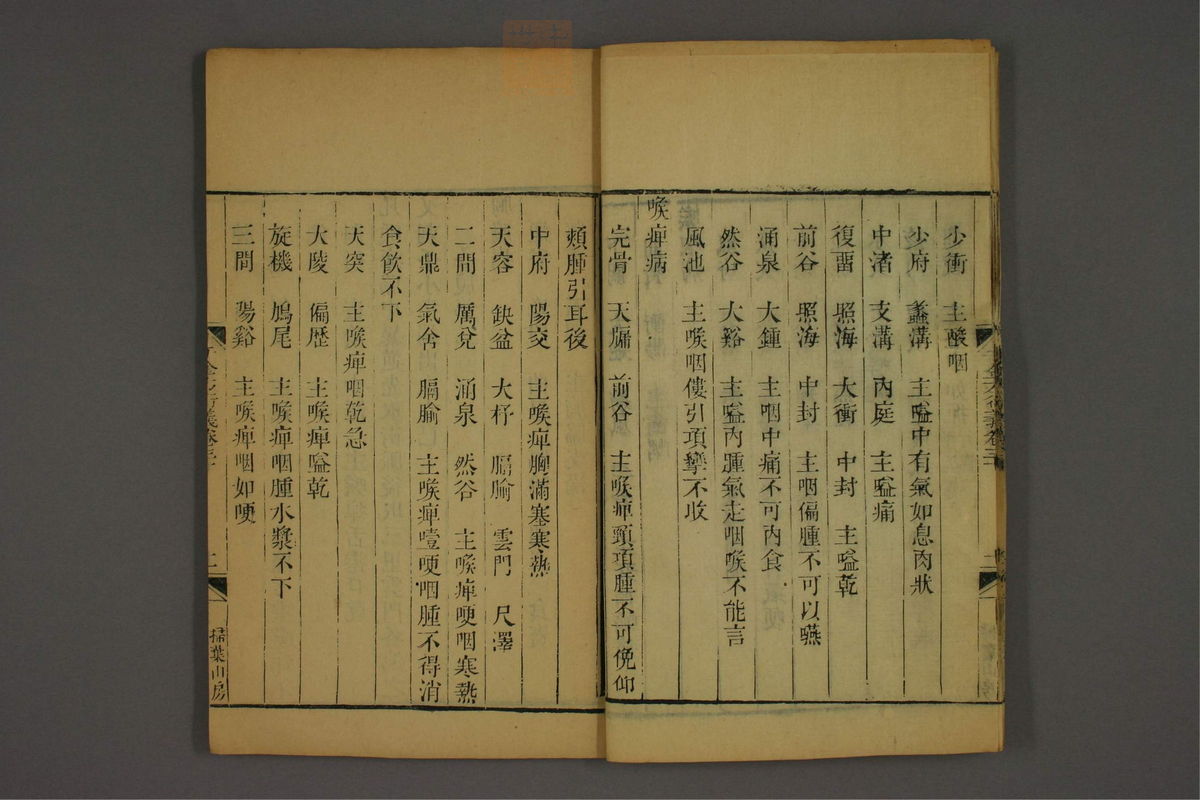 少衝 主酸咽
少府 蠡溝 主嗌中有氣如息肉狀
中渚 支溝 內庭 主嗌痛
復畱 照海 大衝 中封 主嗌乾
前谷 照海 中封 主咽偏腫不可以嚥
涌泉 大鍾 主咽中痛不可內食
然谷 大谿 主嗌內腫氣走咽喉不能言
風池 主喉咽僂引項攣不收
喉痺病
完骨 天牖 前谷 主喉痺頸項腫不可俛仰
頰腫引耳後
中府 陽交 主喉痺胸滿塞寒熱
天容 缺盆 大杼 膈腧 雲門 尺澤
二間 厲兌 涌泉 然谷 主喉痺哽咽寒熱
天鼎 氣舍 膈腧 主喉痺噎哽咽腫不得消
食飲不下
天突 主喉痺咽乾急
大陵 偏歷 主喉痺嗌乾
旋機 鳩尾 主喉痺咽腫水漿不下
三間 陽谿 主喉痺咽如哽
千金方衍義卷三十 二
掃葉山房